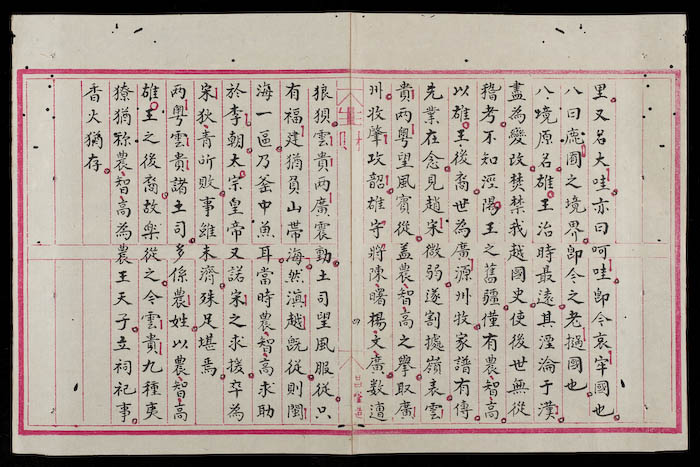 里又名大哇亦曰呵哇卽今哀宰國也
八曰鹿國之境界卽今之老撾國也
八境原名雄王治時最遠其淫淪于漢
盡為變改焚禁我越國史使後世無從
稽考不知涇陽王之舊疆僅有農智高
以雄王後裔世為廣源州牧家譜有傳
先業在念見趙宋微弱遂割據嶺表雲
貴兩粵望風賓從蓋農智高之舉取廣
州收肇政韶雄守將陳曙楊文廣數遭
四
狼狽雲貴兩廣震動土司望風服從只
有福建猶員山帶海然滇越旣從則閩
海一區乃釜中魚耳當時農智高求助
於李朝太宗皇帝又諾宋之求援卒為
宋狄青所敗事雖未濟殊足堪焉
兩粵雲貴諸土司多係農姓以農智高
雄王之後裔故樂從之今雲貴九種夷
獠猶稱農智高為農王天子立祠祀事
香火猶存